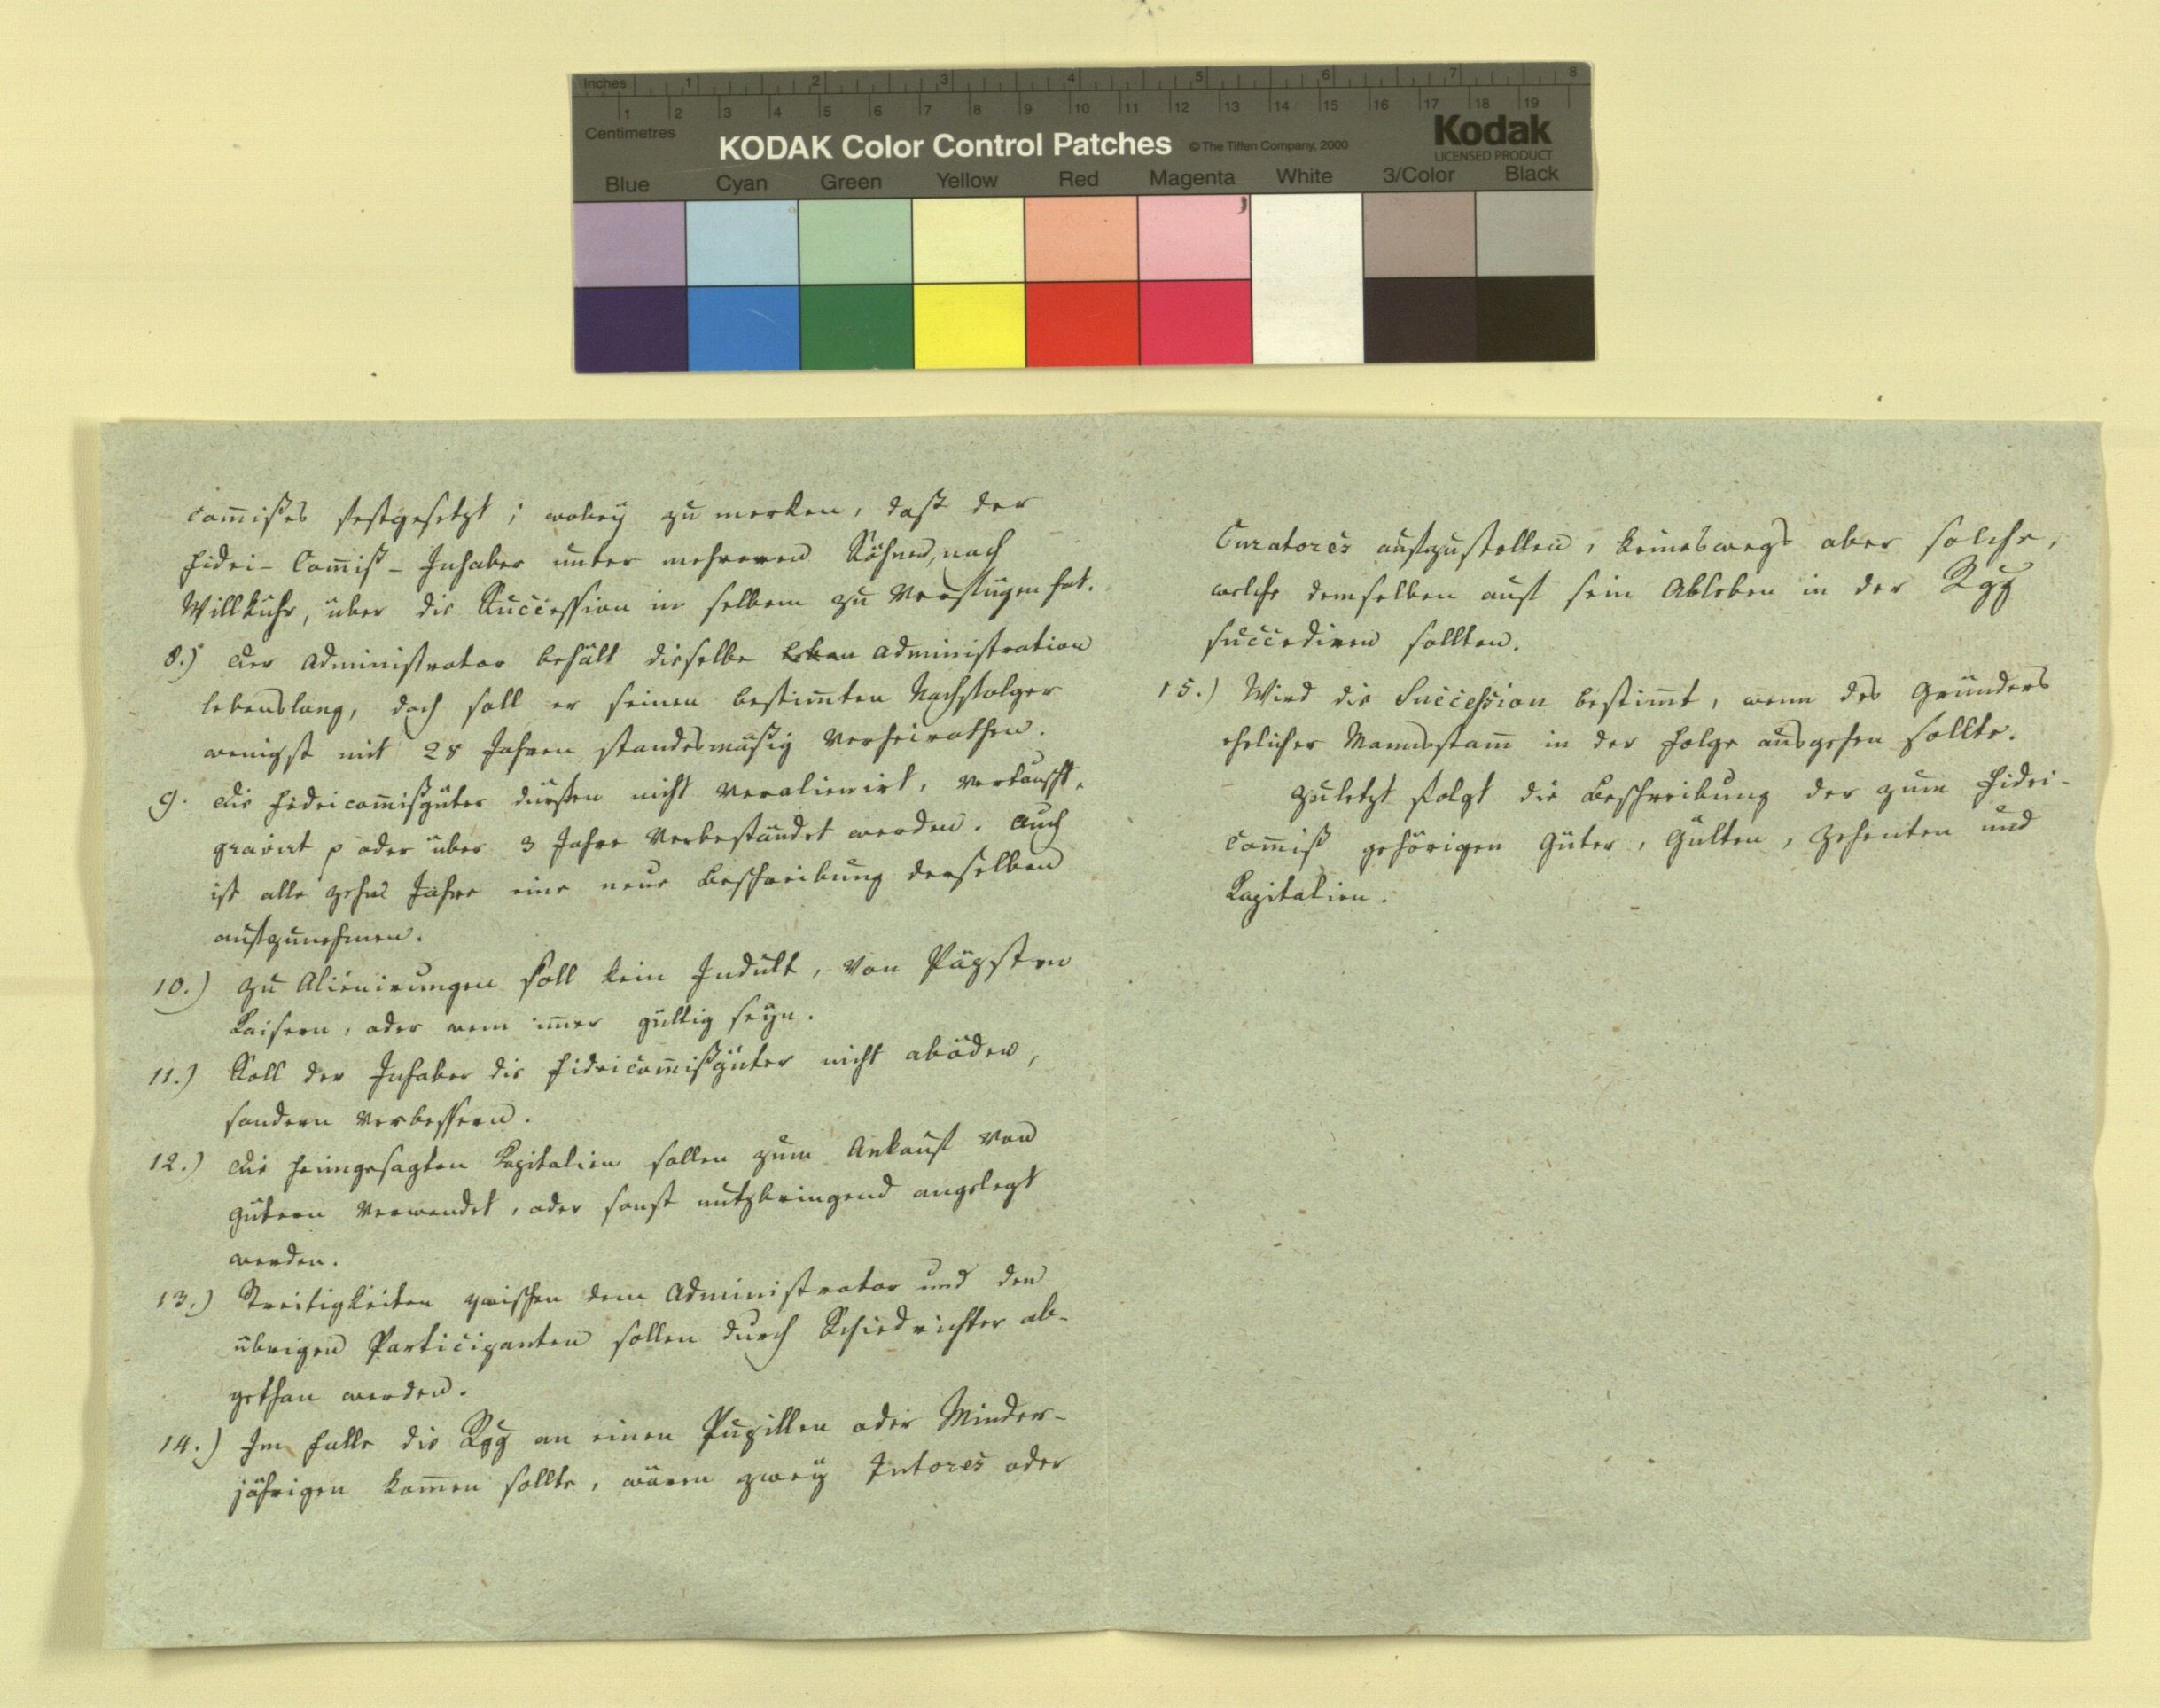 Inches 1 2 3 4 5 6 7 8
1 2 3 4 5 6 7 8 9 10 11 12 13 14 15 16 17 18 19
Centimetres
KODAK Color Control Patches © The Tiffen Company, 2000 Kodak
LICENSED PRODUCT
Blue Cyan Green Yellow Red Magenta White 3/Color Black
com̄ißes festgesetzt; wobey zu merken, daß der
Fidei-Com̄iß-Inhaber unter mehreren Söhnen, nach
Willkühr, über die Succession in selbem zu Verfügen hat.
8.) Der Administrator behält dieselbe Administration
lebenslang, doch soll er seinen bestim̄ten Nachfolger
wenigst mit 28 Jahren standesmäßig verheirathen.
9. Die Fideicom̄ißgüter dürfen nicht veralienirt, vertauscht,
gravirt p oder über 3 Jahre Verbeständet werden. Auch
ist alle zehn Jahre eine neue Beschreibung derselben
aufzunehmen.
10.) Zu Alienirungen soll kein Indult, von Päpsten
Kaisern, oder wem im̄er gültig seyn.
11.) Soll der Inhaber die Fideicom̄ißgüter nicht aböden,
sondern verbessern.
12.) Die heimgesagten Kapitalien sollen zum Ankauf von
Gütern verwendet, oder sonst nutzbringend angelegt
werden.
13.) Streitigkeiten zwischen dem Administrator und den
übrigen Participanten sollen durch Schiedrichter ab-
gethan werden.
14.) Im Falle die Rgg an einen Pupillen oder Minder-
jährigen kom̄en sollte, wären zwey Tutores oder
Curatores aufzustellen, keineswegs aber solche,
welche demselben auf sein Ableben in der Rgg
succediren sollten.
15.) Wird die Succession bestim̄t, wenn des Gründers
ehelicher Mannsstam̄ in der Folge ausgehen sollte.
Zuletzt folgt die Beschreibung der zum Fidei-
com̄iß gehörigen Güter, Gülten, Zehenten und
Kapitalien.